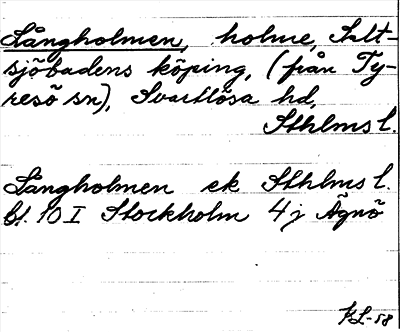 Långholmen, holme, Salt-
sjöbadens köping, (från Ty-
resö sn), Svartlösa hd,
Sthlms l.
Långholmen ek Sthlms l.
bl. 10 I Stockholm 4 j Ägnö
KL-58